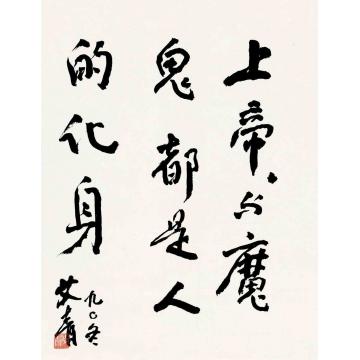 上帝与魔
鬼都是人
的化身
九〇冬
艾青